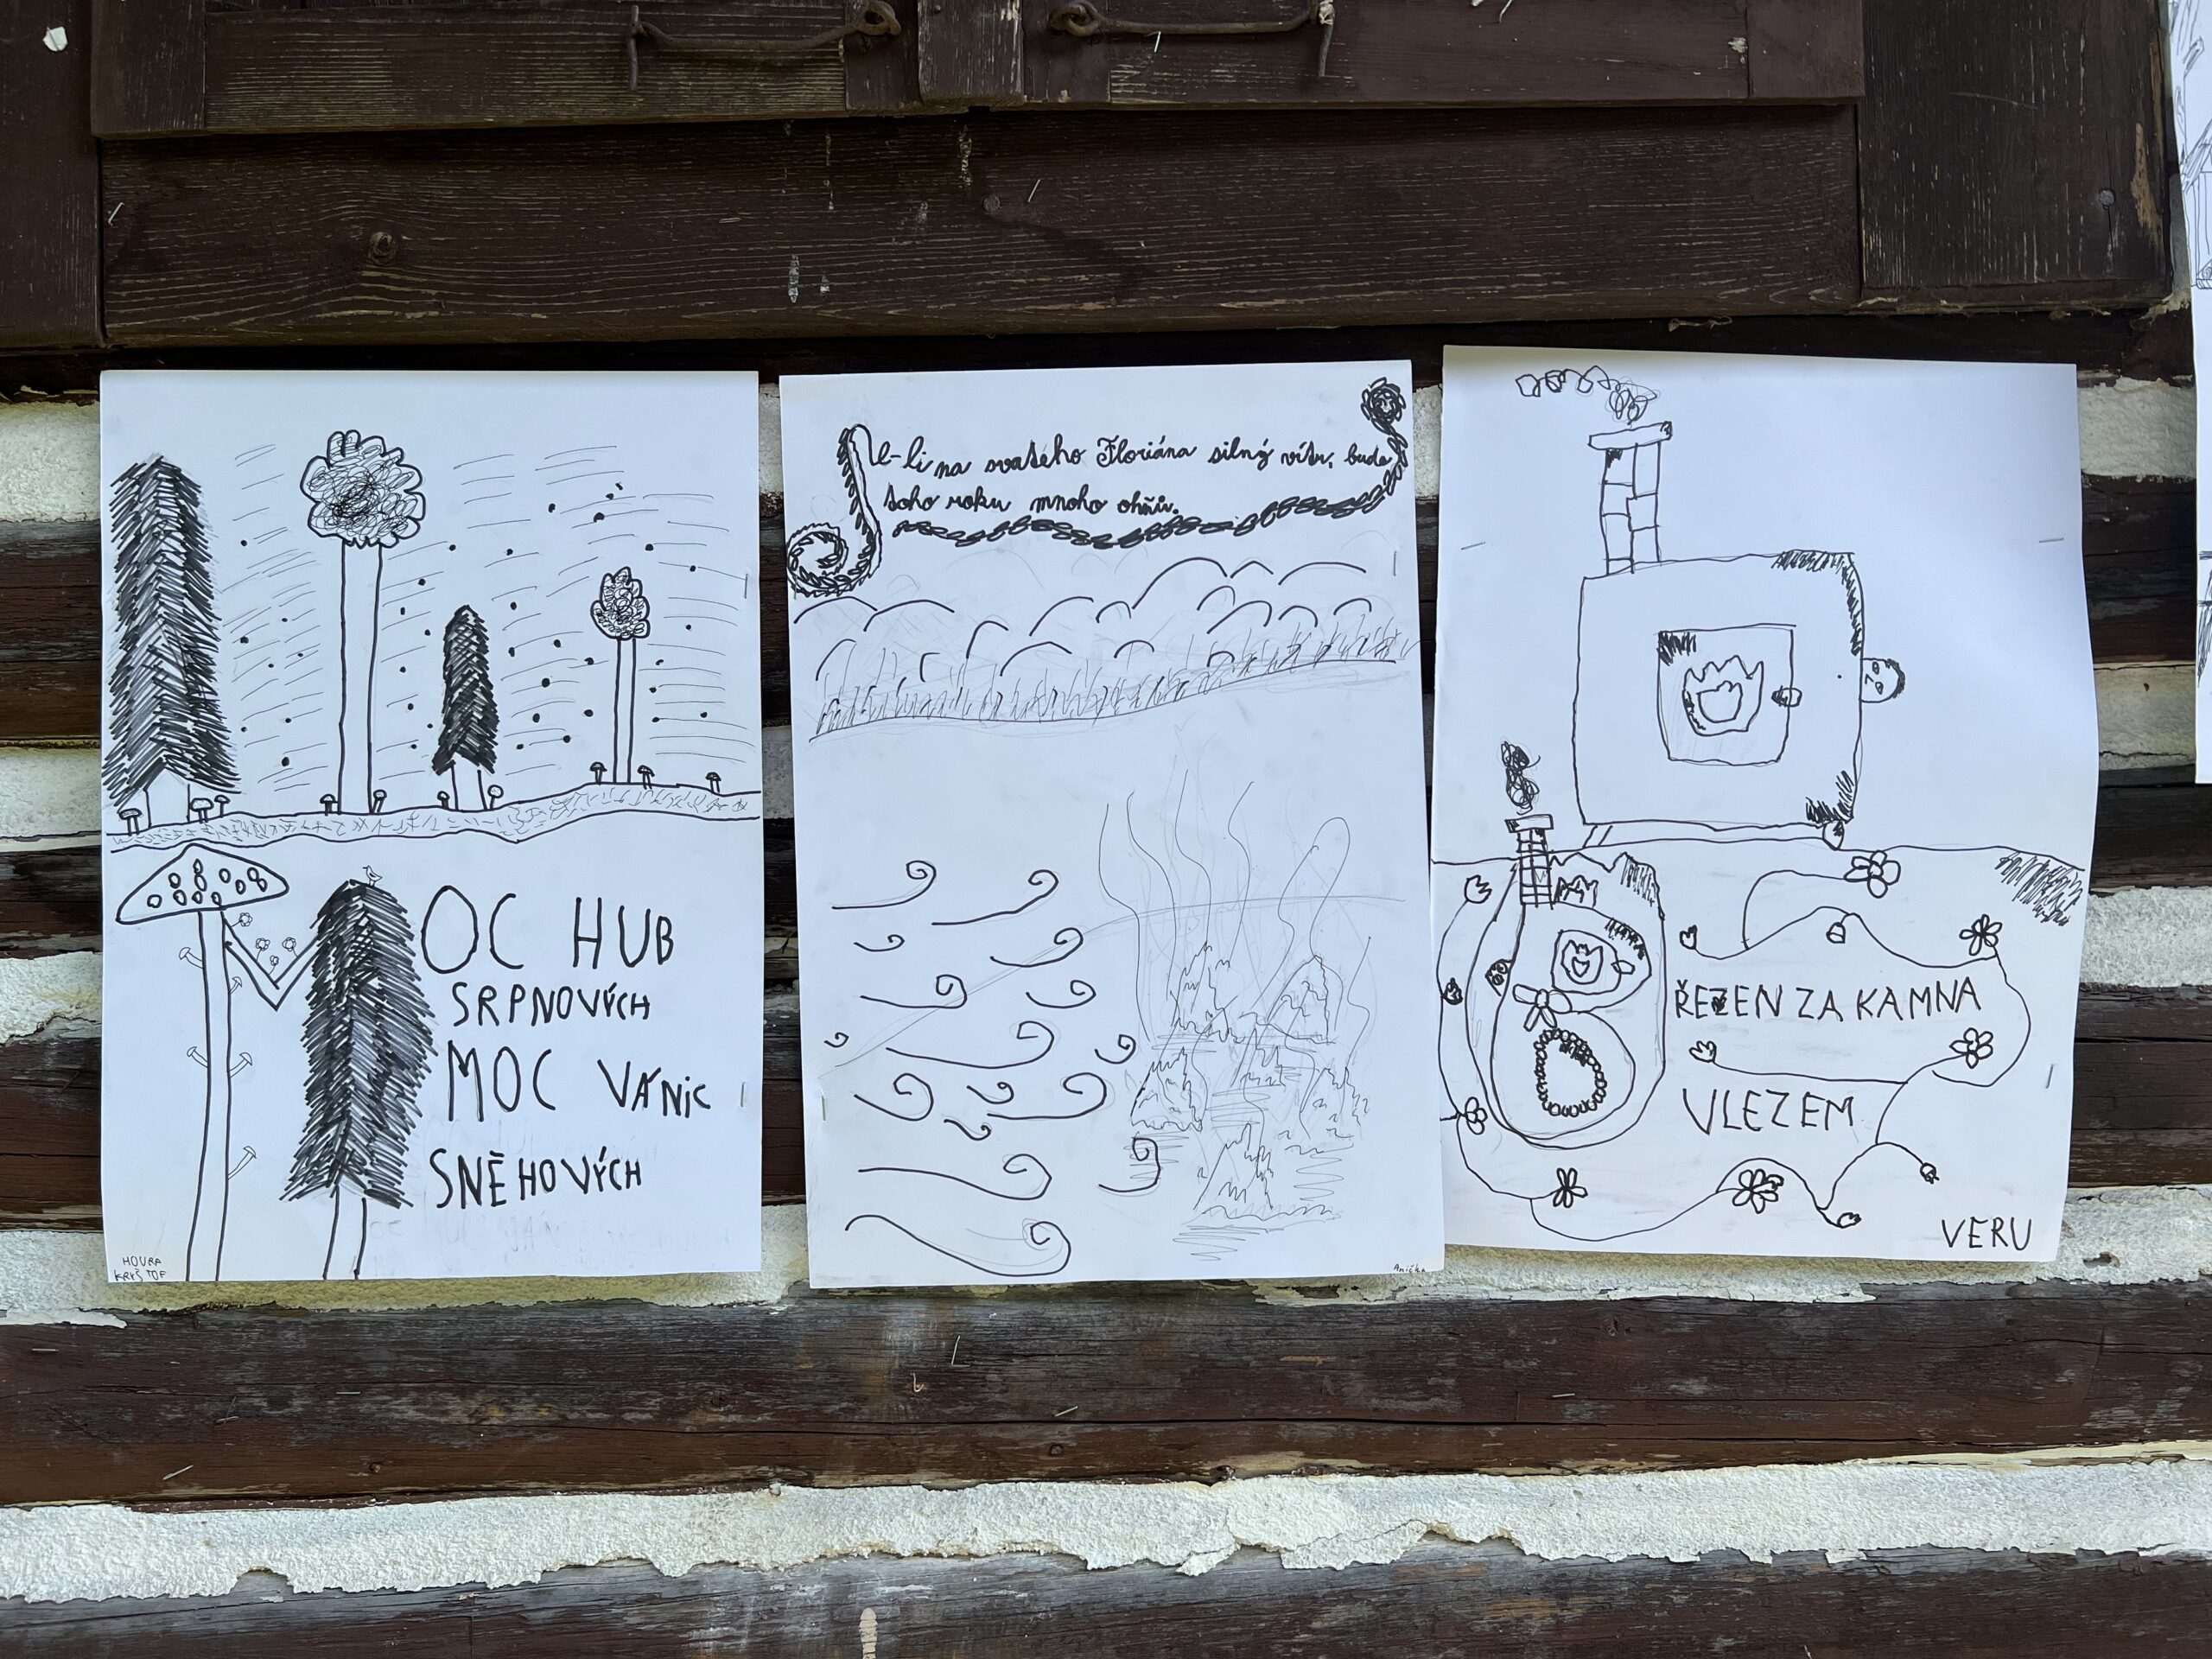 MOC HUB
SRPNOVÝCH
MOC VÁNIC
SNĚHOVÝCH
HOURA
KRYŠTOF
Je-li na svatého Floriána silný vítr, bude
toho roku mnoho ohňů.
Anička
BŘEZEN ZA KAMNA
VLEZEM
VERU